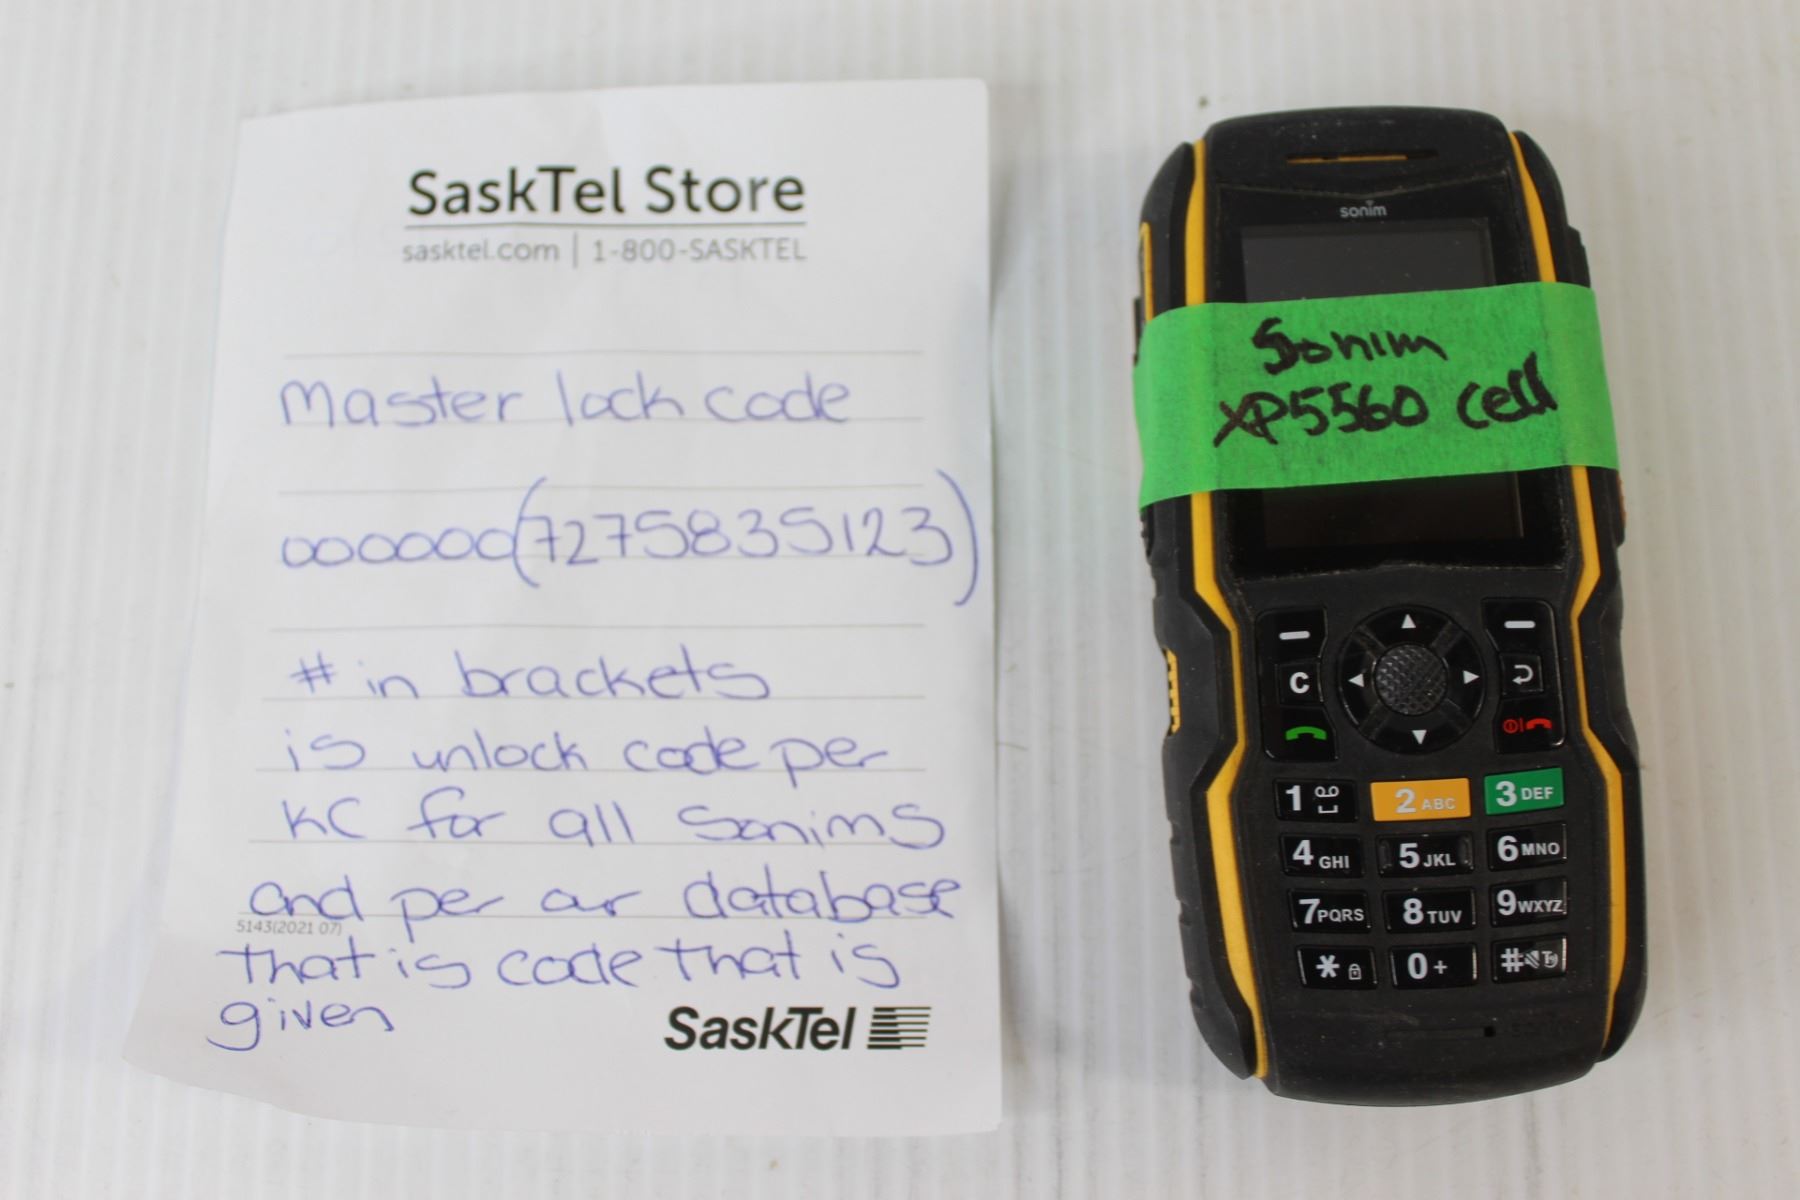 SaskTel Store
sasktel.com | 1-800-SASKTEL
Master lock code
000000(7275835123)
# in brackets
is unlock code per
KC for all Sonims
and per our database
5143(2021 07)
that is code that is
given
SaskTel
sonim
Sonim
XP5560 cell
C
1
2 ABC
3 DEF
4 GHI
5 JKL
6 MNO
7 PQRS
8 TUV
9 WXYZ
*
0 +
#
sonim